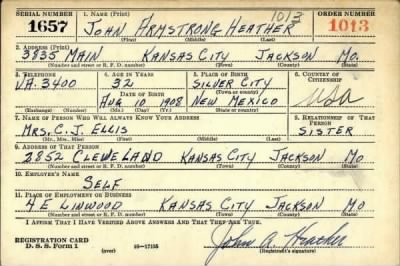 SERIAL NUMBER 1. NAME (Print) ORDER NUMBER
1657 JOHN ARMSTRONG HEATHER 1013 1013
(First) (Middle) (Last)
2. ADDRESS (Print)
3835 MAIN KANSAS CITY JACKSON MO.
(Number and street or R. F. D. number) (Town) (County) (State)
3. TELEPHONE 4. AGE IN YEARS 5. PLACE OF BIRTH 6. COUNTRY OF CITIZENSHIP
VA. 3400 32 SILVER CITY USA
DATE OF BIRTH (Town or county)
AUG 10 1908 NEW MEXICO
(Exchange) (Number) (Mo.) (Day) (Yr.) (State or country)
7. NAME OF PERSON WHO WILL ALWAYS KNOW YOUR ADDRESS 8. RELATIONSHIP OF THAT PERSON
MRS. C. J. ELLIS SISTER
(Mr., Mrs., Miss) (First) (Middle) (Last)
9. ADDRESS OF THAT PERSON
2852 CLEWELAND KANSAS CITY JACKSON MO
(Number and street or R. F. D. number) (Town) (County) (State)
10. EMPLOYER'S NAME
SELF
11. PLACE OF EMPLOYMENT OR BUSINESS
4 E LINWOOD KANSAS CITY JACKSON MO
(Number and street or R. F. D. number) (Town) (County) (State)
I AFFIRM THAT I HAVE VERIFIED ABOVE ANSWERS AND THAT THEY ARE TRUE.
REGISTRATION CARD
D. S. S. Form 1 (over) 16—17105 John A. Heather
(Registrant's signature)